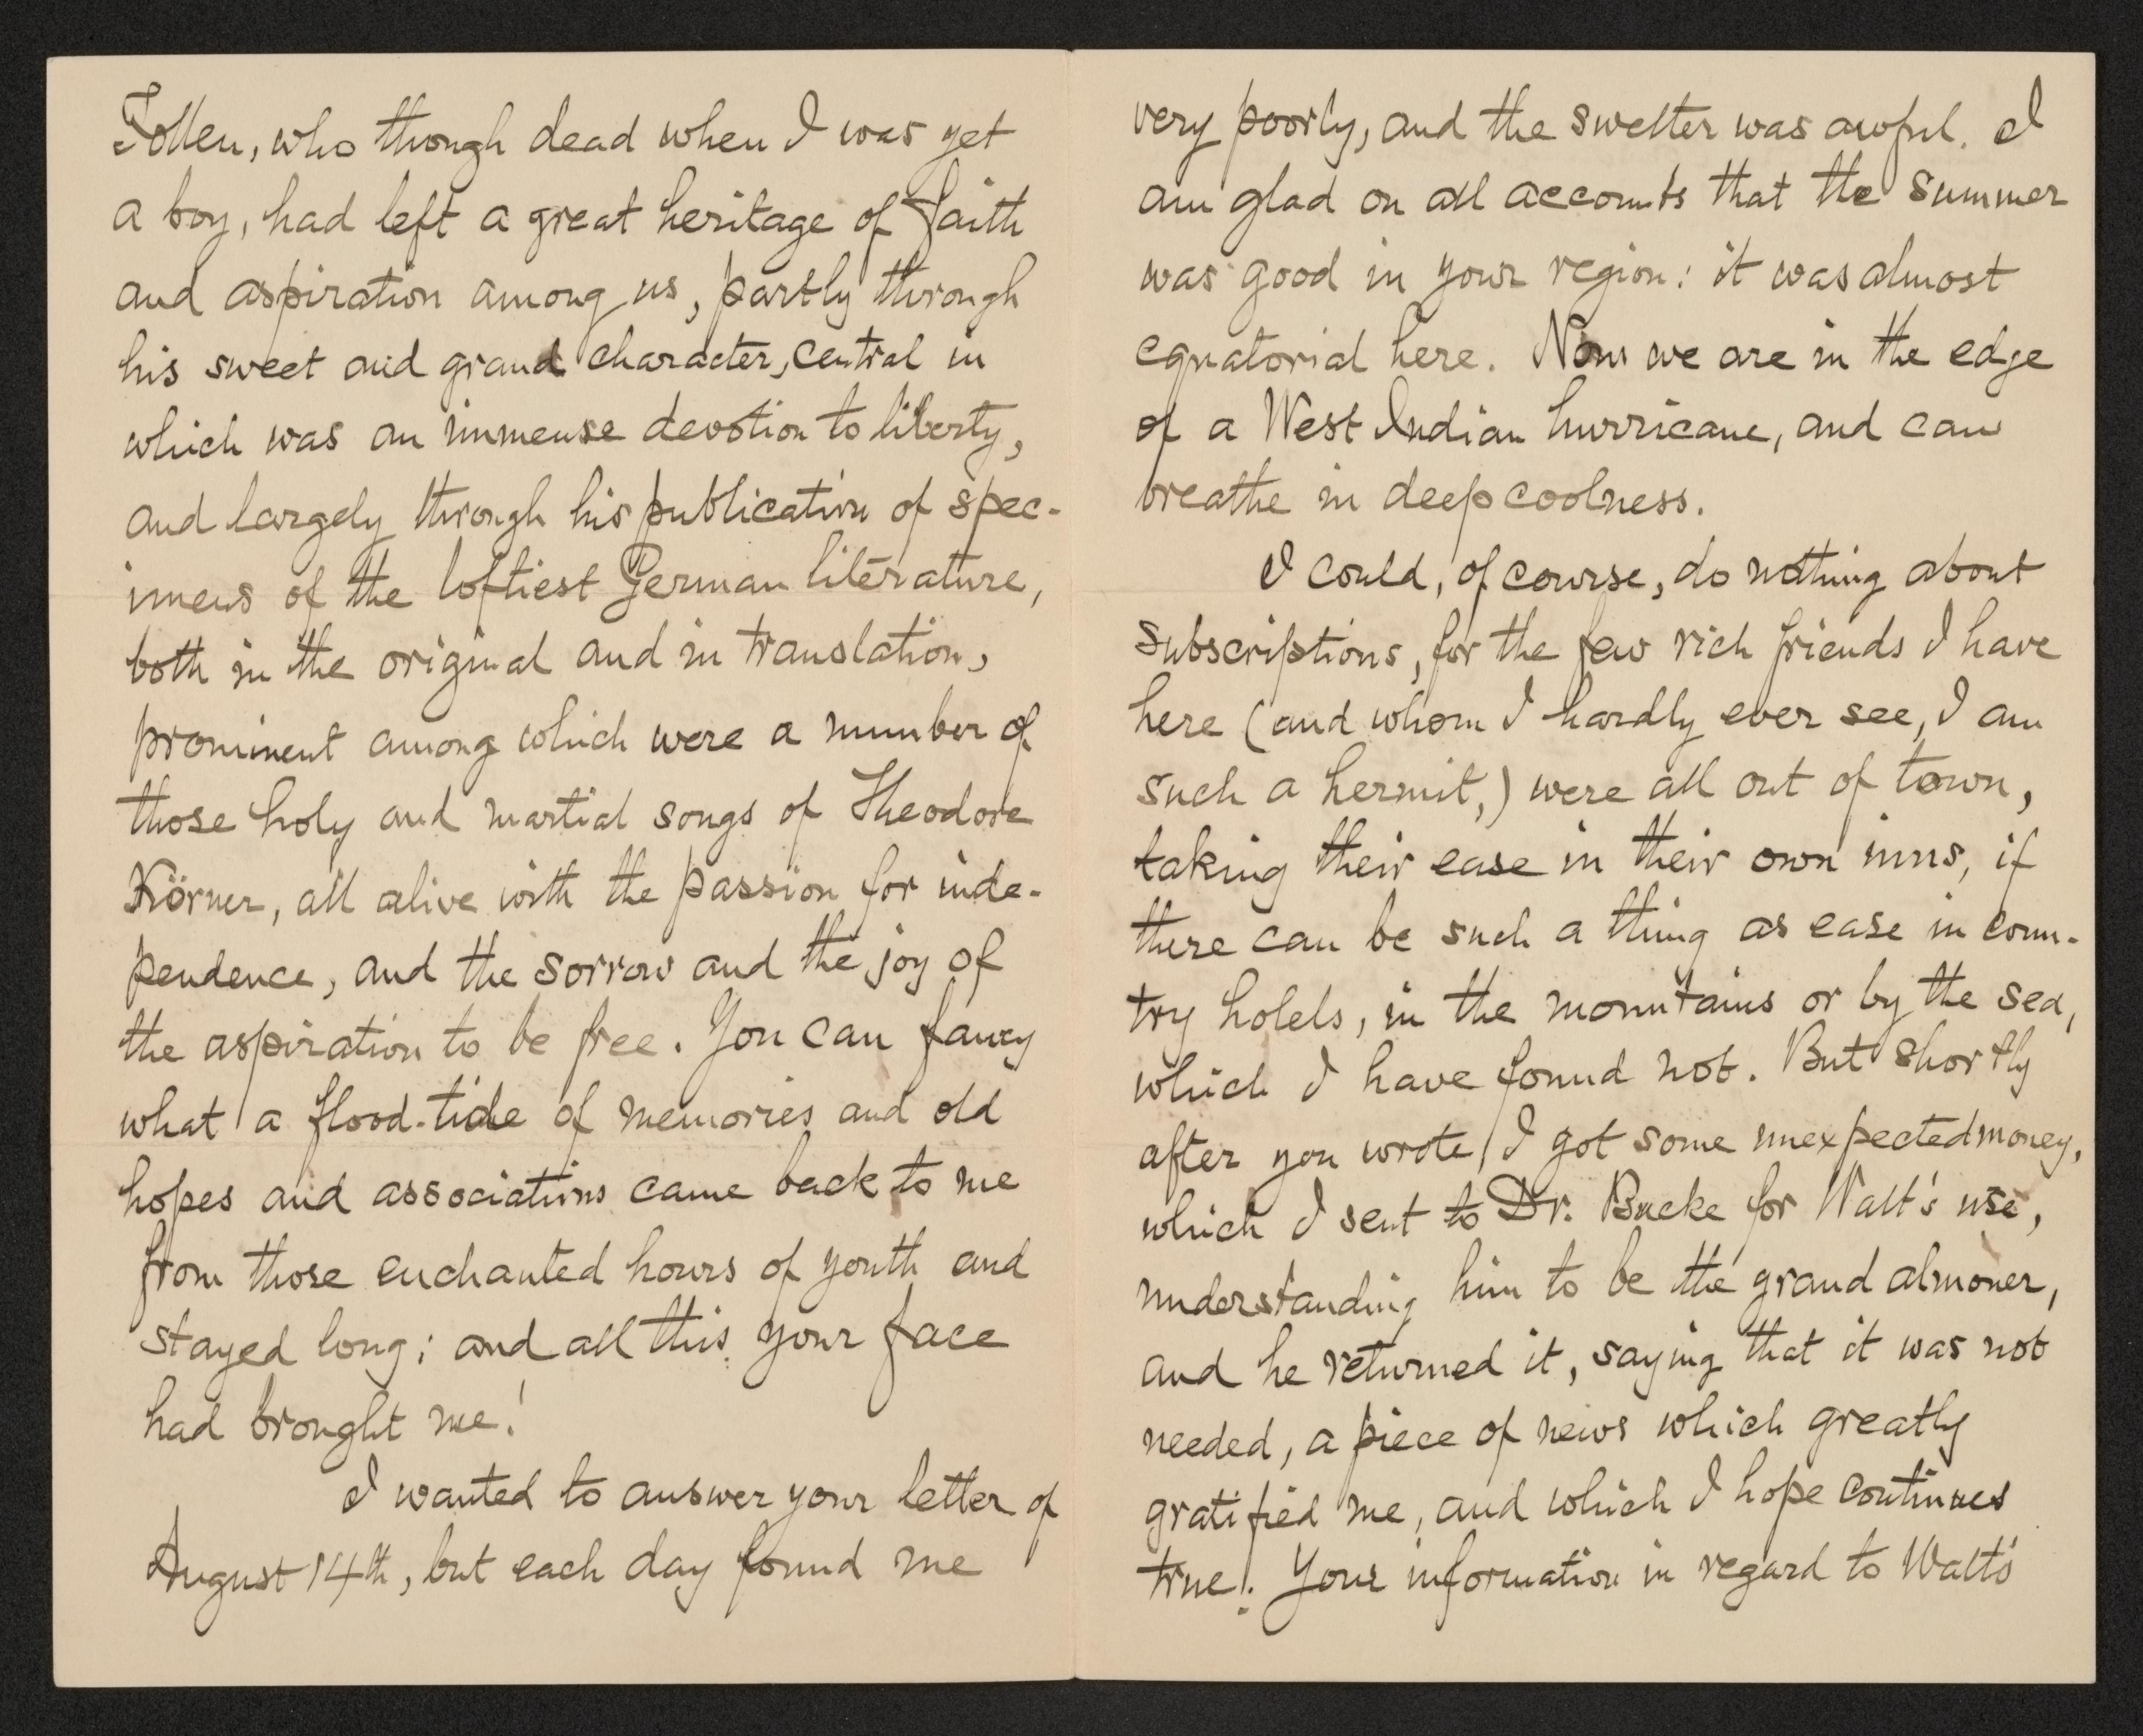 Follen, who though dead when I was yet
a boy, had left a great heritage of faith
and aspiration among us, partly through
his sweet and grand character, central in
which was an immense devotion to liberty,
and largely through his publication of spec-
imens of the loftiest German literature,
both in the original and in translation,
prominent among which were a number of
those holy and martial songs of Theodore
Körner, all alive with the passion for inde-
pendence, and the sorrow and the joy of
the aspiration to be free. You can fancy
what a flood-tide of memories and old
hopes and associations came back to me
from those enchanted hours of youth and
stayed long; and all this your face
had brought me!
I wanted to answer your letter of
August 14th, but each day found me
very poorly, and the swelter was awful. I
am glad on all accounts that the summer
was good in your region: it was almost
equatorial here. Now we are in the edge
of a West Indian hurricane, and can
breathe in deep coolness.
I could, of course, do nothing about
subscriptions, for the few rich friends I have
here (and whom I hardly ever see, I am
such a hermit,) were all out of town,
taking their ease in their own inns, if
there can be such a thing as ease in coun-
try hotels, in the mountains or by the sea,
which I have found not. But shortly
after you wrote, I got some unexpected money,
which I sent to Dr. Bucke for Walt's use,
understanding him to be the grand almoner,
and he returned it, saying that it was not
needed, a piece of news which greatly
gratified me, and which I hope continues
true! Your information in regard to Walt's